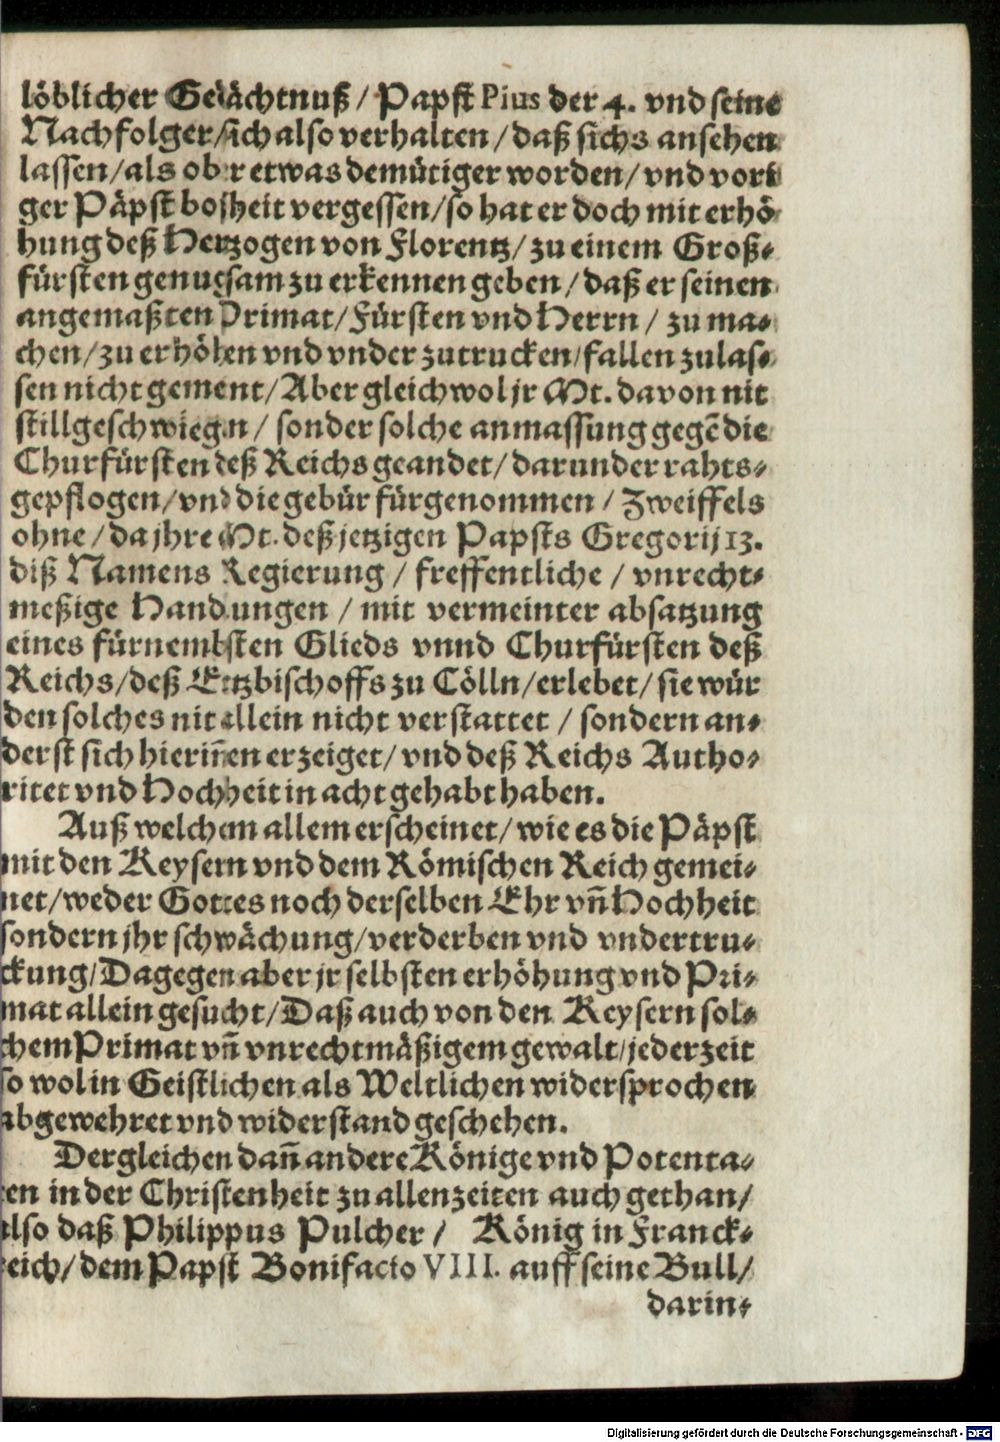 löblicher Gedächtnuß / Papst Pius der 4. vnd seine
Nachfolger/sich also verhalten / daß sichs ansehen
lassen/als ob er etwas demütiger worden/ vnd vori
ger Päpst boßheit vergessen/so hat er doch mit erhö-
hung deß Hertzogen von Florentz/ zu einem Groß-
fürsten genugsam zu erkennen geben / daß er seinen
angemaßten Primat/Fürsten vnd Herrn / zu ma-
chen/zu erhöhen vnd vnder zutrucken/fallen zulas-
sen nicht gement/Aber gleichwol jr Mt. davon nit
stillgeschwiegen / sonder solche anmassung gegē die
Churfürsten deß Reichs geandet/darunder rahts-
gepflogen/vnd die gebür fürgenommen / Zweiffels
ohne / da jhre Mt. deß jetzigen Papsts Gregorij 13.
diß Namens Regierung / freffentliche / vnrecht-
meßige Handlungen / mit vermeinter absatzung
eines fürnembsten Glieds vnnd Churfürsten deß
Reichs/deß Ertzbischoffs zu Cölln/erlebet/ sie wür
den solches nit allein nicht verstattet / sondern an-
derst sich hierin̄en erzeiget/ vnd deß Reichs Autho-
ritet vnd Hochheit in acht gehabt haben.
Auß welchem allem erscheinet/ wie es die Päpst
mit den Keysern vnd dem Römischen Reich gemei-
net/weder Gottes noch derselben Ehr vn̄ Hochheit
sondern jhr schwächung/verderben vnd vndertru-
ckung/Dagegen aber jr selbsten erhöhung vnd Pri-
mat allein gesucht/Daß auch von den Keysern sol-
chem Primat vn̄ vnrechtmäßigem gewalt/jederzeit
so wol in Geistlichen als Weltlichen widersprochen
abgewehret vnd widerstand geschehen.
Dergleichen dan̄ andere Könige vnd Potenta-
ten in der Christenheit zu allen zeiten auch gethan/
also daß Philippus Pulcher / König in Franck-
reich/ dem Papst Bonifacio VIII. auff seine Bull/
darin-
Digitalisierung gefördert durch die Deutsche Forschungsgemeinschaft - DFG